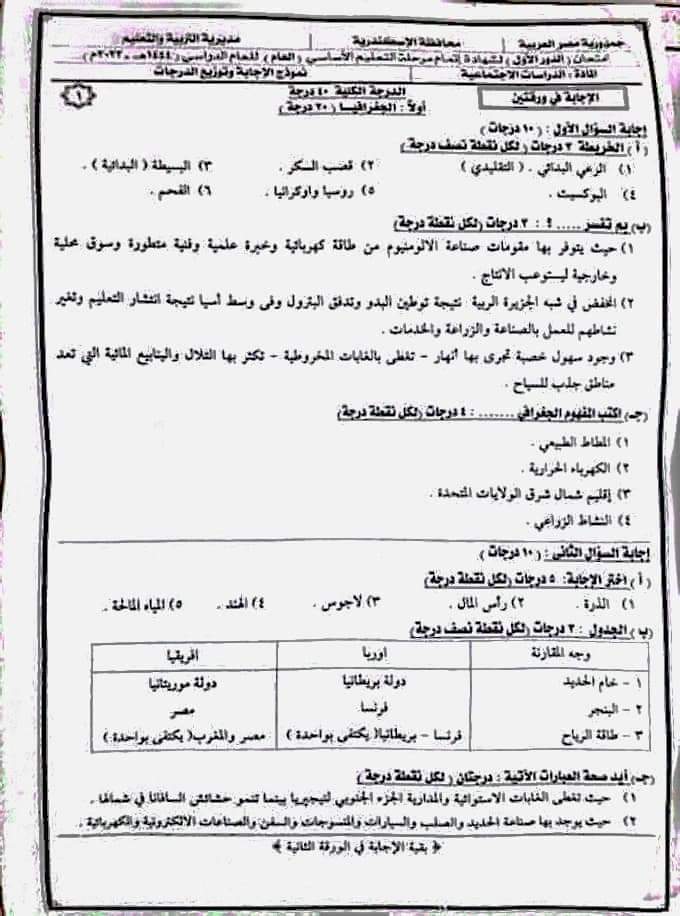 جمهورية مصر العربية محافظة الإسكندرية مديرية التربية والتعليم
امتحان (الدور الأول) لشهادة إتمام مرحلة التعليم الأساسي (العام) للعام الدراسي (١٤٤٤هـ - ٢٠٢٣م)
المادة : الدراسات الإجتماعية نموذج الإجابة وتوزيع الدرجات
الإجابة في ورقتين
الدرجة الكلية ٤٠ درجة
أولاً : الجغرافيا (٢٠ درجة)
١
إجابة السؤال الأول : (١٠ درجات)
(أ) الخريطة ٣ درجات (لكل نقطة نصف درجة)
١) الرعي البدائي . (التقليدي) ٢) قصب السكر . ٣) البسيطة (البدائية) .
٤) البوكسيت . ٥) روسيا واوكرانيا . ٦) الفحم .
(ب) بم تفسر ..... ؟ : ٣ درجات (لكل نقطة درجة)
١) حيث يتوفر بها مقومات صناعة الالومنيوم من طاقة كهربائية وخبرة علمية وفنية متطورة وسوق محلية
وخارجية ليستوعب الانتاج .
٢) انخفض في شبه الجزيرة الربية نتيجة توطين البدو وتدفق البترول وفى وسط أسيا نتيجة انتشار التعليم وتغير
نشاطهم للعمل بالصناعة والزراعة والخدمات .
٣) وجود سهول خصبة تجرى بها أنهار – تغطى بالغابات المخروطية – تكثر بها التلال والينابيع المائية التي تعد
مناطق جذب للسياح .
(جـ) إكتب المفهوم الجغرافي ....... : ٤ درجات (لكل نقطة درجة)
١) المطاط الطبيعي .
٢) الكهرباء الحرارية .
٣) إقليم شمال شرق الولايات المتحدة .
٤) النشاط الزراعي .
إجابة السؤال الثانى : (١٠ درجات)
(أ) اختر الإجابة : ٥ درجات (لكل نقطة درجة)
١) الذرة . ٢) رأس المال . ٣) لاجوس . ٤) الهند . ٥) المياه المالحة .
(ب) الجدول : ٣ درجات (لكل نقطة نصف درجة)
وجه المقارنة اوربا افريقيا
١ - خام الحديد دولة بريطانيا دولة موريتانيا
٢ - البنجر فرنسا مصر
٣ - طاقة الرياح فرنسا – بريطانيا( يكتفى بواحدة ) مصر والمغرب( يكتفى بواحدة )
(جـ) أيد صحة العبارات الأتية : درجتان (لكل نقطة درجة)
١) حيث تغطى الغابات الاستوائية والمدارية الجزء الجنوبي لنيجيريا بينما تنمو حشائش السافانا في شمالها .
٢) حيث يوجد بها صناعة الحديد والصلب والسيارات والمنسوجات والسفن والصناعات الألكترونية والكهربائية .
﴿ بقية الإجابة في الورقة الثانية ﴾